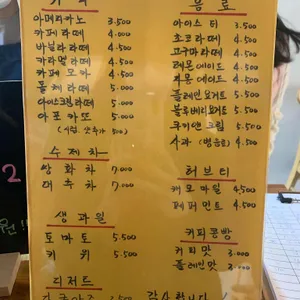 커피
아메리카노 3.500
카페라떼 4.000
바닐라라떼 4.500
카라멜라떼 4.500
카페모카 4.500
돌체라떼 5.000
아이스크림라떼 5.000
아포카또 5.000
수제차
쌍화차 7.000
대추차 7.000
생과일
토마토 5.500
키위 5.500
디저트
음료
아이스티 3.500
초코라떼 4.500
고구마라떼 4.500
레몬에이드 4.500
자몽에이드 4.500
플레인요거트 5.000
블루베리요거트 5.500
쿠키앤크림 5.500
사과 (병음료) 4.000
허브티
캐모마일 4.500
페퍼민트 4.500
커피콩빵
커피맛 3.000
플레인맛 3.000
감사합니다
2